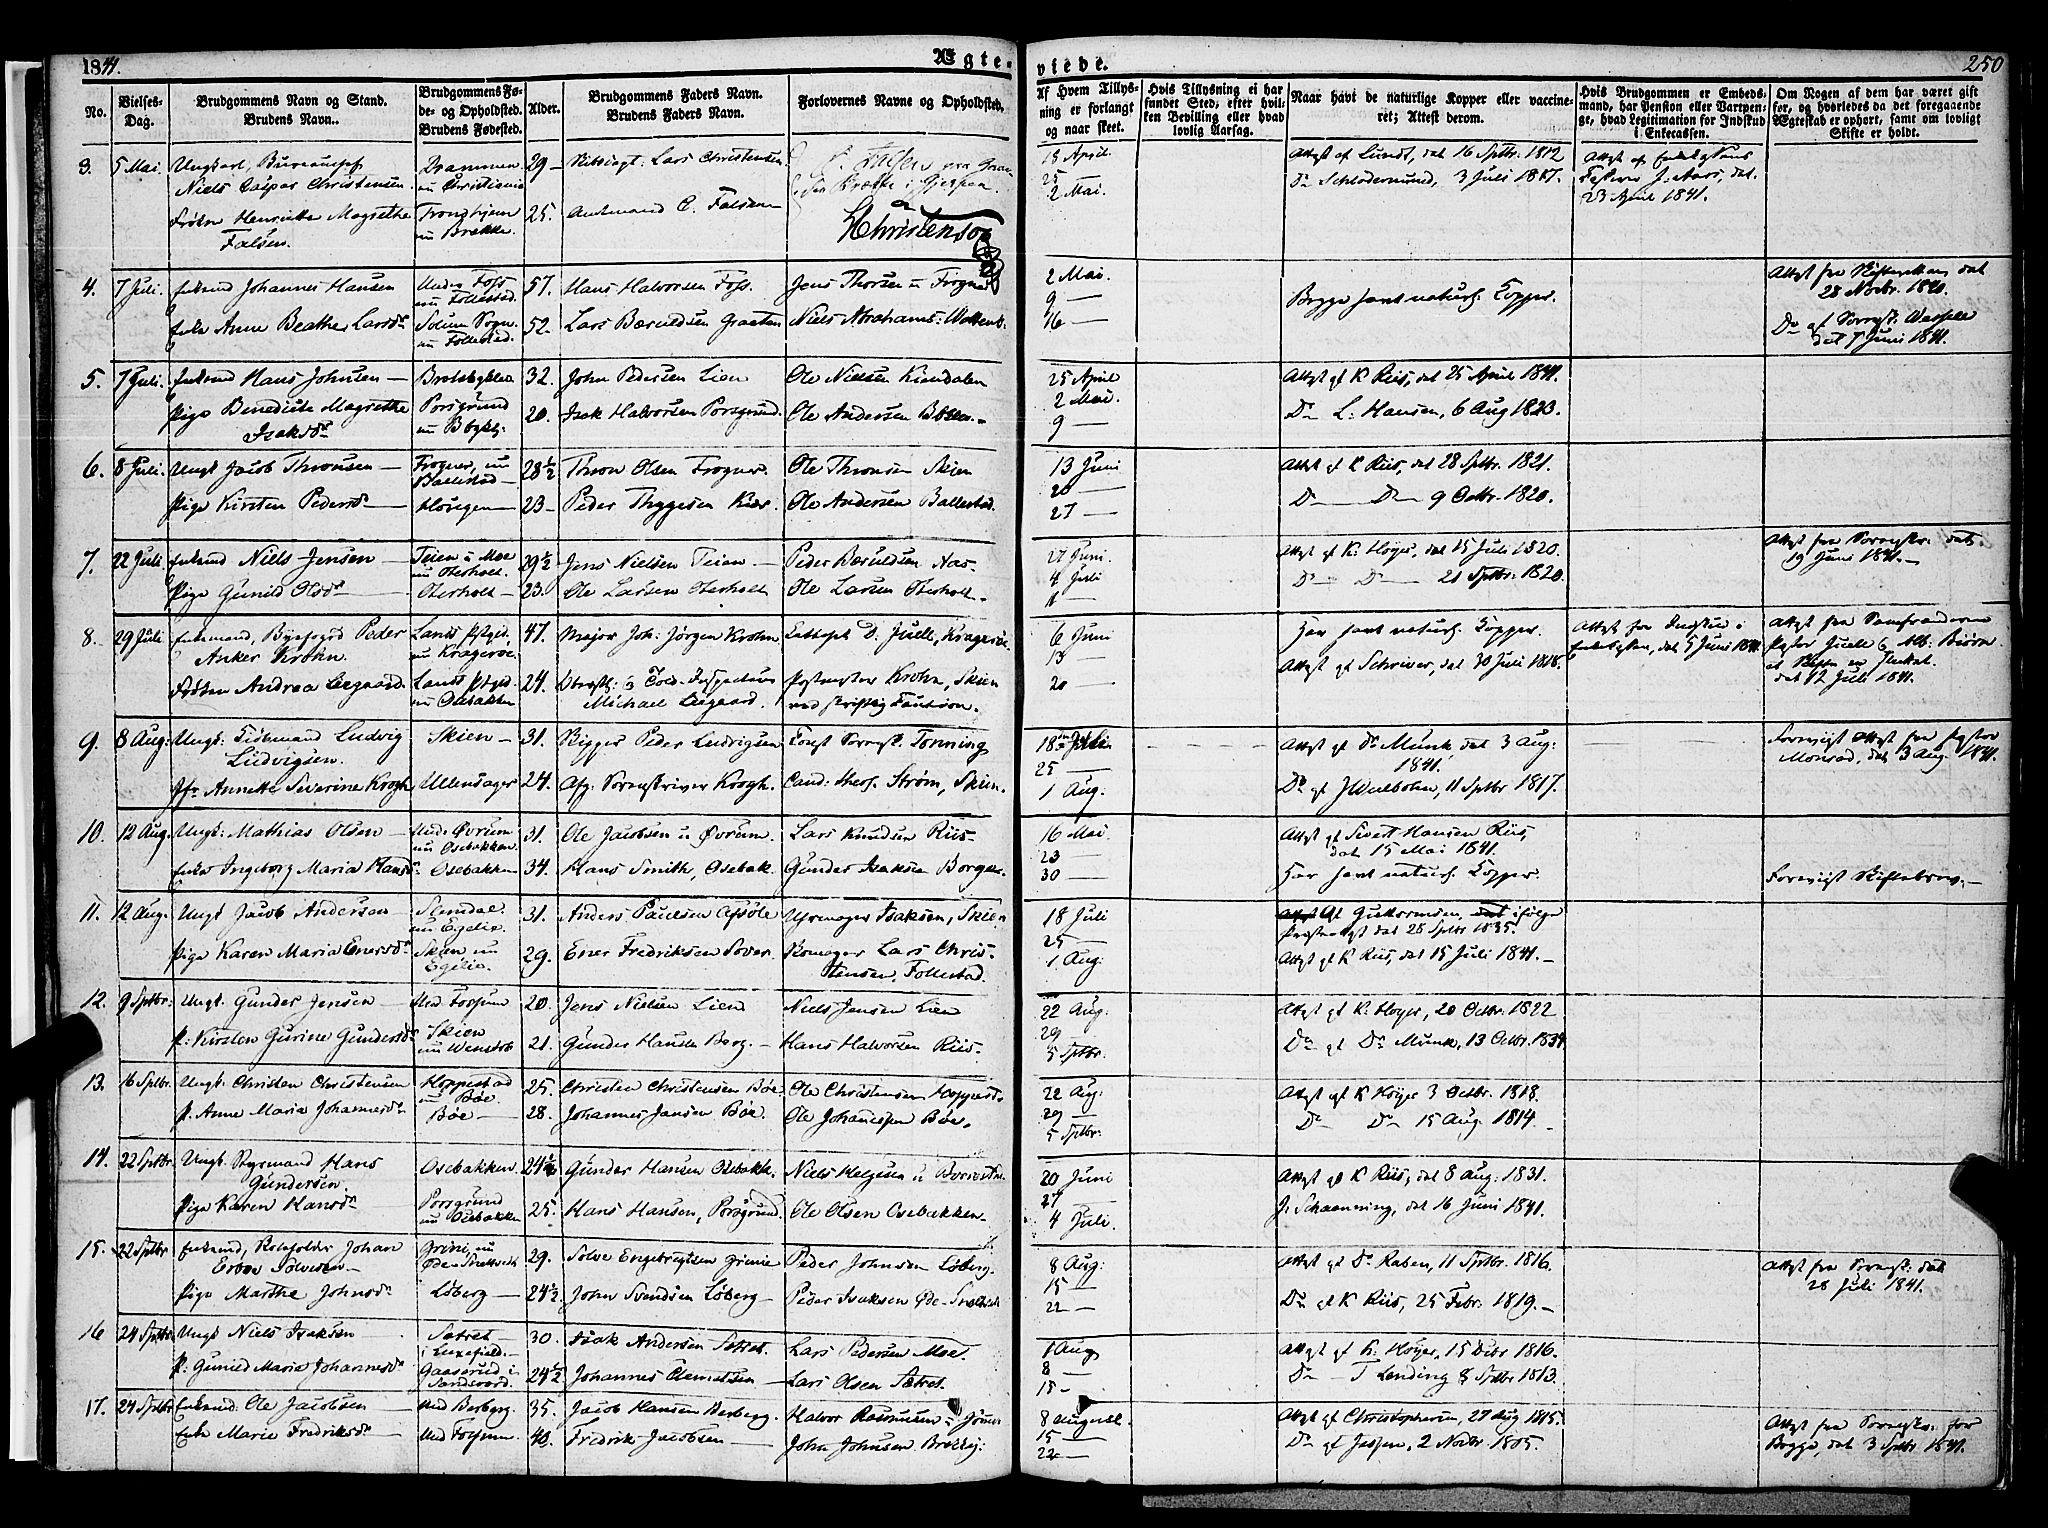 1841.
Ægte-
viede.
250
No.
Vielses-
Dag.
Brudgommens Navn og Stand.
Brudens Navn.
Brudgommens Fø-
de- og Opholdsted.
Brudens Fødested.
Alder.
Brudgommens Faders Navn.
Brudens Faders Navn.
Forlovernes Navne og Opholdsted.
Af Hvem Tillys-
ning er forlangt
og naar skeet.
Hvis Tillysning ei har
fundet Sted, efter hvil-
ken Bevilling eller hvad
lovlig Aarsag.
Naar havt de naturlige Kopper eller vaccine-
ret; Attest derom.
Hvis Brudgommen er Embeds-
mand, har Pension eller Vartpen-
ge, hvad Legitimation for Indskud
i Enkecassen.
Om Nogen af dem har været gift
før, og hvorledes da det foregaaende
Ægteskab er ophørt, samt om lovligt
Skifte er holdt.
3. 5 Mai. Ungkarl, Bureauchef
Niels Casper Christensen
Drammen
nu Christiania
29
Lars Christensen
Frøken Henriette Magrethe
Falsen.
Trondhjem
nu Brekke.
25. Amtmand C. Falsen
Christensen
18 April.
25 —
2 Mai.
Attest af Lundt, dat 16 Sptbr. 1812
Do Schlødermund, 3 Juli 1817.
dat.
23 April 1841.
4. 7 Juli. Enkemd Johannes Hansen
Foss
nu Follestad.
57. Hans Halvorsen Foss.
Jens Thorsen i Frogner
Enke Anne Beathe Larsdr
Solum Sogn.
nu Follestad.
52. Lars Beruldsen Graaten
Niels Abrahams:
2 Mai.
9 —
16 —
Begge havt naturl. Kopper.
Attest fra Skifteretten, dat
28 Novbr. 1840.
Do af Sorensk: Wessel
dat 7 Juni 1841.
5. 7 Juli. Enkemd Hans Johnsen
32. John Pedersen Lien
Ole Nielsen Kiendalen
Pige Benedicte Magrethe
Isaksdr
Porsgrund
20. Isak Halvorsen Porsgrund.
Ole Andersen
25 April
2 Mai.
9 —
Attest af K Riis, dat 25 April 1841.
Do L. Hansen, 6 Aug 1823.
6. 8 Juli. Ungk Jacob Thronsen
Frogner, nu
Ballestad
28½ Tron Olsen Frogner.
Ole Thronsen Skien
Pige Kirsten Pedersdr
23 — Peder Thygesen Kiær.
Ole Andersen Ballestad.
13 Juni
20 —
27 —
Attest af K Riis, dat 28 Sptbr. 1821.
Do — Do 9 Octbr. 1820.
7. 22 Juli Enkemd Niels Jensen
Teien i Moe
nu Oterholt.
29½ Jens Nielsen Teien
Peder Beruldsen Aas
Pige Gunild Olsdr
Oterholt
23. Ole Larsen Oterholt
Ole Larsen Oterholt
27 Juni
4 Juli
11 —
Attest af K: Høyer, dat 15 Juli 1820.
Do — Do — 21 Sptbr: 1820.
Attest fra Sorenskr: dat
19 Juni 1841.
8. 29 Juli Enkemand, Byefoged Peder
Anker Krohn.
nu Kragerøe.
47. Major Joh: Jørgen Krohn
D: Juell, Kragerøe.
Frøken Andrea Aagaard.
nu Osebakken
24. Told-Inspecteur
Michael Aagaard.
Postmester Krohn, Skien
ved skriftlig Caution.
6 Juni
13 —
20 —
Har havt naturl. Kopper.
Attest af Schriver, dat 30 Juli 1818.
dat 5 Juni 1841.
Attest fra Samfrænderne
Pastor Juell & Biørn
at Skifte er sluttet
dat 12 Juli 1841.
9. 8 Aug: Ungk: Tidemand Ludvig
Ludvigsen.
Skien
31. Peder Ludvigsen
Const Sorensk. Tønning
Jfr Annette Severine Krogh
Ullensager
24. Afg. Sorenskriver Krogh.
Cand: theol. Strøm, Skien.
18 Juli
25 —
1 Aug.
Attest af Dr Munk, dat 3 Aug:
1841.
Do af J Weilbohn, 11 Sptbr 1817.
Foreviist Attest fra Pastor
Monrad, dat 3 Aug 1841.
10. 12 Aug. Ungk: Mathias Olsen
Øvrum
nu Osebakken
31. Ole Jacobsen i Øvrum.
Lars Knudsen Riis
Enke Ingeborg Maria Hansdr
Osebakken
34. Hans Smith, Osebak.
Gunder Isaksen Borge.
16 Mai.
23 —
30 —
Attest af Sivert Hansen Riis,
dat 15 Mai 1841.
Har havt naturl. Kopper.
Foreviist Skiftebrev.
11. 12 Aug. Ungk Jacob Andersen
Slemdal.
nu Egelie.
31. Anders Paulsen
Isaksen, Skien
Pige Karen Maria Enersdr
Skien nu
Egelie.
29. Ener Fredriksen
Lars Chris-
tensen, Follestad.
18 Juli
25 —
1 Aug:
Af Guttormsen, ifølge
dat 28 Sptbr 1835.
Attest af K Riis, dat 15 Juli 1841.
12. 9 Sptbr: Ungk. Gunder Jensen
Fossum
20. Jens Nielsen Lien
Niels Jensen Lien
P: Kirsten Gurine Gundersdr
Skien
nu Venstøb
21. Gunder Hansen Borg.
Hans Halvorsen Riis.
22 Aug:
29
5 Sptbr.
Attest af K: Høyer, 20 Octbr. 1822
Do af Dr Munk, 13 Octbr. 1834
13. 16 Sptbr. Ungk: Christen Christensen
Hoppestad
nu Bøe.
25. Christen Christensen Bøe
Ole Christensen Hoppest.
P. Anne Maria Johannesdr
Bøe
28. Johannes Jansen Bøe.
Ole Johannesen Bøe.
22 Aug:
29 —
5 Sptbr:
Attest af K Høyer 3 Octbr. 1818.
Do Do 15 Aug: 1814.
14. 22 Sptbr. Ungk: Styrmand Hans
Gundersen
Osebakken.
24½ Gunder Hansen Osebakk.
Niels Helgesen i
Pige Karen Hansdr
Porsgrund
nu Osebakken
25. Hans Hansen, Porsgrund.
Ole Olsen Osebakken
20 Juni
27 —
4 Juli.
Attest af K Riis, dat 8 Aug: 1831.
J. Schaanning, dat 16 Juni 1841.
15. 22 Sptbr Enkemd, Johan
Solvesen
Grini, nu
29. Solve Engebregtsen Grinie
Peder Johnsen Løberg.
Pige Marthe Johnsdr
Løberg
24½. John Svendsen Løberg
Peder Isaksen
8 Aug:
15 —
22 —
Attest af Dr Raben, 11 Sptbr. 1816.
Do af K Riis, 25 Febr. 1819.
Attest fra Sorensk: dat
28 Juli 1841.
16 24 Sptbr. Ungk Niels Isaksen
Sætret
i Luxefield.
30. Isak Andersen Sætret.
Lars Pedersen Moe.
P: Gunild Maria Johannesdr
Gaaserud i
Sandsværd.
24½ Johannes Clemetsen
Lars Olsen Sætret.
1 Aug
8 —
15 —
Attest af K: Høyer, 15 Dcbr 1816.
Do — T Lending 8 Sptbr 1813.
17. 24 Sptbr Enkemd: Ole Jacobsen
Berberg.
35. Jacob Hansen Berbegg.
Halvor Rasmusen
Enke Marie Fredriksdr
Fossum
40. Fredrik Jacobsen
John Johnsen
8 August.
15 —
22 —
Attest af Christophersen, 27 Aug 1815.
Do af Jespen, 2 Novbr. 1805.
Attest fra Sorenskr: for
Begge, dat 3 Sptbr. 1841.